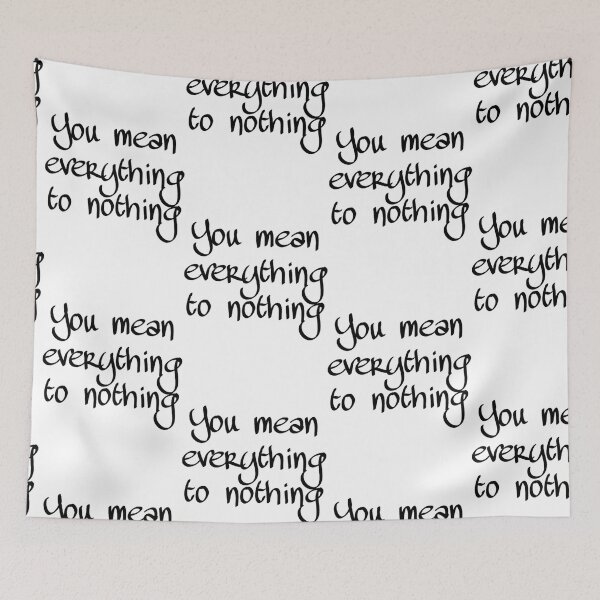 everything
to nothing
everythin
to nothin
You mean
everything
to nothing
You mean
everything
to nothing
You mean
everything
to nothing
You me
everythin
to nothin
You mean
everything
to nothing
You mean
everything
to nothing
You mean
everything
to nothing
You me
everythin
to nothin
You mean
You mean